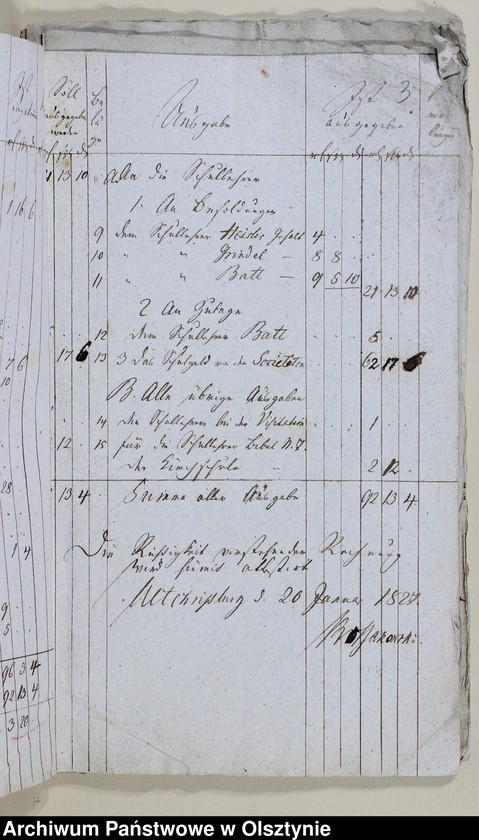 3
Soll ausgegeben werden
Beläge
Ausgabe
Ist ausgegeben
13 10 A. An die Schullehrer
1. An Besoldungen
9 dem Schullehrer Heisler Gehalt 4 . .
10 " " Grindel — 8 8 .
11 " " Batt — 9 5 10
21 13 10
2 An Zulage
12 dem Schullehrer Batt 5 . .
17 6 13 3 das Schulgeld von den Societäten 62 17 6
B. Alle übrige Ausgaben
14 den Schullehrern bei der Visitation 1 . .
12 . 15 für die Schullehrer Bibel N. T.
der Kirchschule 2 12 .
13 4 Summa aller Ausgabe 92 13 4
Die Richtigkeit vorstehender Rechnung
wird hiemit attestirt
Altchristburg d. 20 Januar 1827.
1 16 6
7 6
10
28
1 4
9
5
96 3 4
92 13 4
3 20
Archiwum Państwowe w Olsztynie